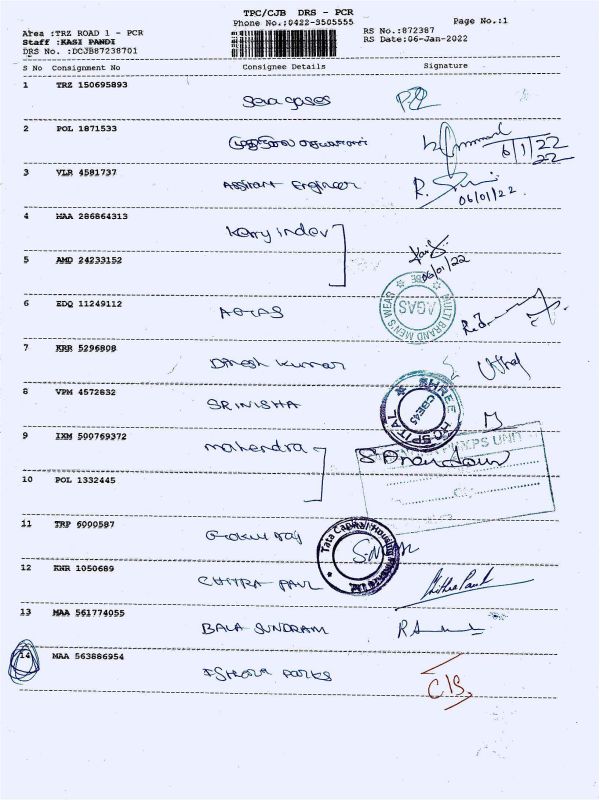 TPC/CJB DRS - PCR
Phone No.:0422-3505555
Page No.:1
Area :TRZ ROAD 1 - PCR
Staff :KASI PANDI
DRS No. :DCJB87238701
RS No.:872387
RS Date:06-Jan-2022
S No Consignment No Consignee Details Signature
1 TRZ 150695893
Sera gases
2 POL 1871533
6/1/22
22
3 VLR 4581737
Assitant Engineer
R.
06/01/22
4 MAA 286864313
Karry indev
06/01/22
5 AMD 24233152
6 EDQ 11249112
AGAS
MULTI BRAND MEN'S WEAR
AGAS
CBE
7 KRR 5296808
Dinesh kumar
8 VPM 4572832
SRINISHA
SHREE HOSPITAL
CBE45
9 IXM 500769372
mahendra
UNIT
10 POL 1332445
11 TRP 6000587
Gokul raj
Tata Capital Housing
12 KNR 1050689
CHITRA PAUL
Chithra Paul
13 MAA 561774055
BALA SUNDRAM
14 MAA 563886954